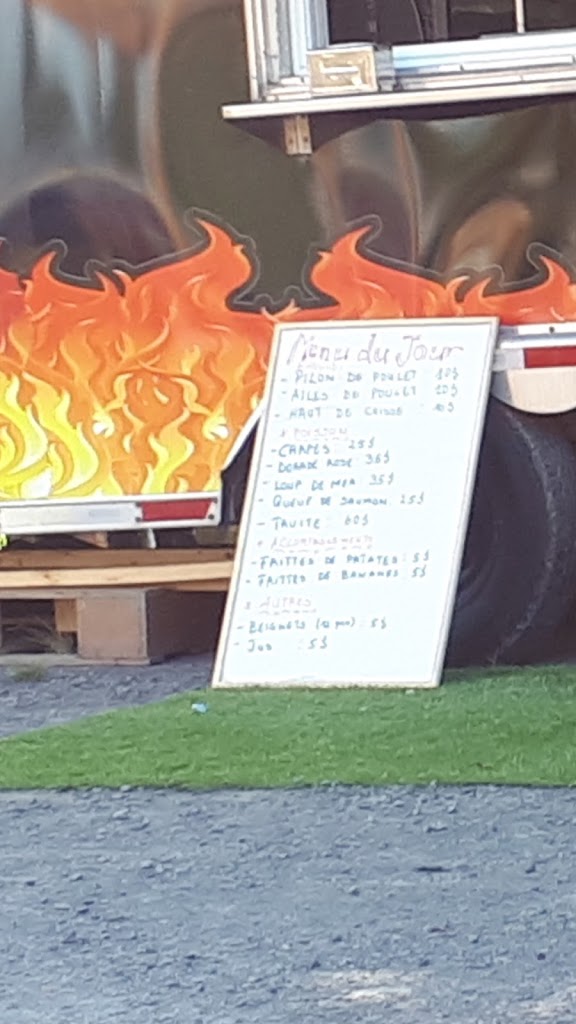 Menu du Jour
- PILON DE POULET 10$
- AILES DE POULET 10$
- HAUT DE CUISSE : 10$
* POISSON
- CARPES : 25$
- DORADE ROSE : 35$
- LOUP DE MER : 35$
- QUEUE DE SAUMON : 25$
- TRUITE : 60$
* ACCOMPAGNEMENTS
- FRITTES DE PATATES : 5$
- FRITTES DE BANANES : 5$
* AUTRES
- BEIGNETS : 5$
- JUS : 5$